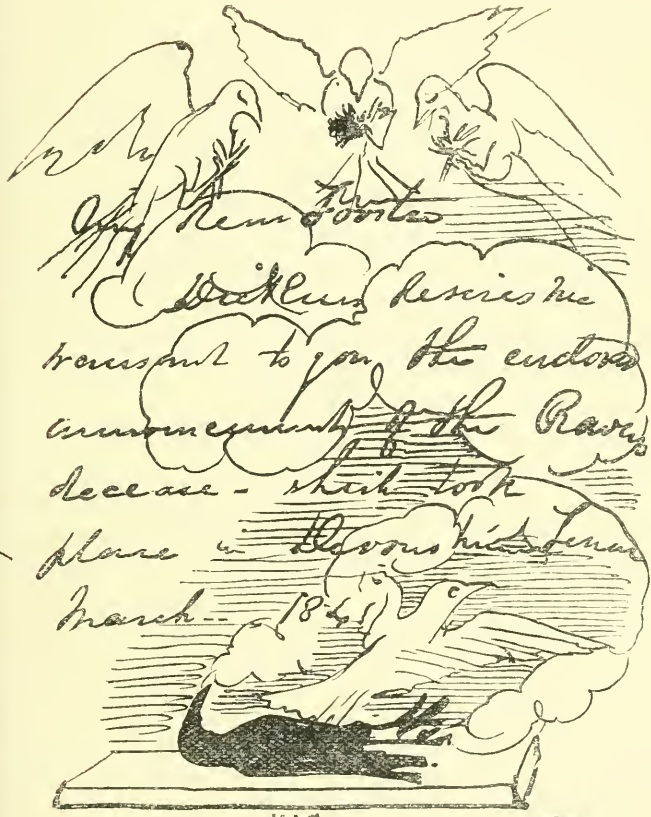 My dear Forster
Dickens desires me
transmit to you the enclosed
announcement of the Raven's
decease - which took
place in Devonshire Terrace
March -- 1841